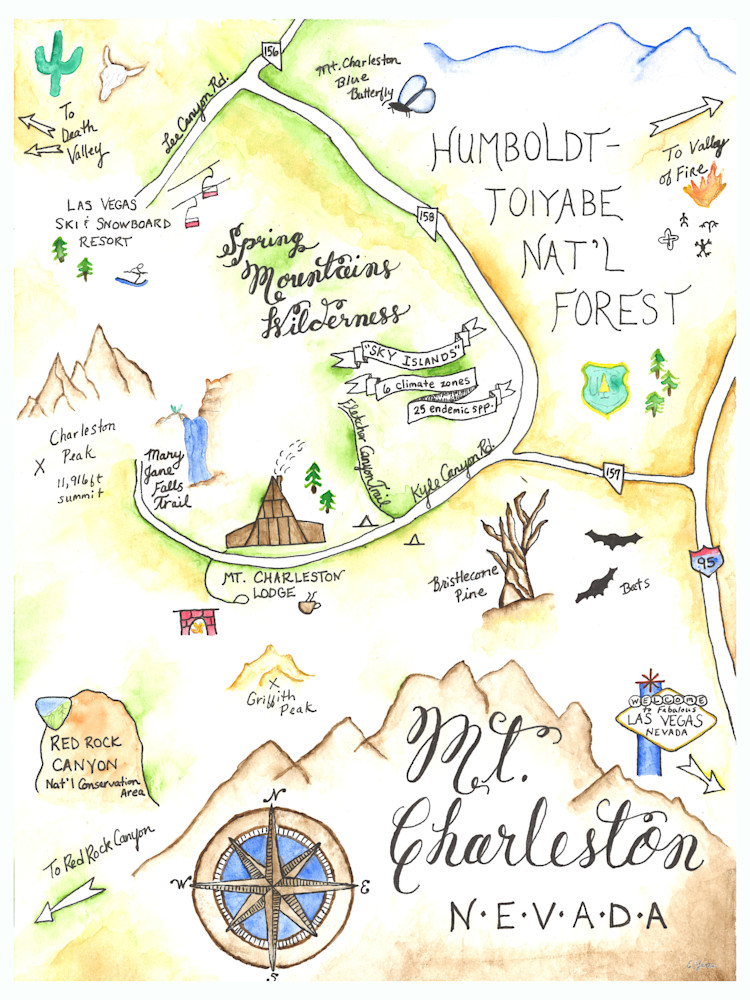 156
Mt. Charleston
Blue
Butterfly
To
Death
Valley
Lee Canyon Rd.
HUMBOLDT-
TOIYABE
NAT'L
FOREST
To Valley
of Fire
LAS VEGAS
SKI & SNOWBOARD
RESORT
158
Spring
Mountains
Wilderness
"SKY ISLANDS"
6 climate zones
25 endemic spp.
US
Charleston
Peak
X
11,916ft
summit
Mary
Jane
Falls
Trail
Fletcher Canyon Trail
Kyle Canyon Rd.
157
95
MT. CHARLESTON
LODGE
Bristlecone
Pine
Bats
X
Griffith
Peak
WELCOME
To Fabulous
LAS VEGAS
NEVADA
RED ROCK
CANYON
Nat'l Conservation
Area
To Red Rock Canyon
Mt.
Charleston
N•E•V•A•D•A
N
W
E
S